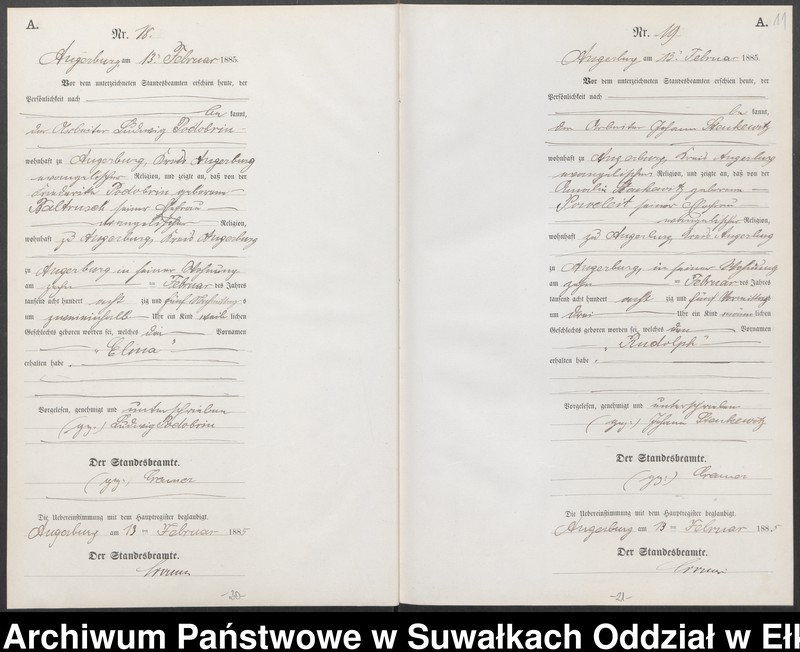 A.
Nr. 18.
Angerburg am 13ten Februar 1885.
Vor dem unterzeichneten Standesbeamten erschien heute, der
Persönlichkeit nach
be kannt,
der Arbeiter Ludwig Podobrin
wohnhaft zu Angerburg, Kreis Angerburg
evangelischer Religion, und zeigte an, daß von der
Friederike Podobrin geborene
Baltrusch seiner Ehefrau
evangelischer Religion,
wohnhaft zu Angerburg, Kreis Angerburg
zu Angerburg in seiner Wohnung
am zehn ten Februar des Jahres
tausend acht hundert acht zig und fünf Nachmittags
um zweieinhalb Uhr ein Kind weib lichen
Geschlechts geboren worden sei, welches den Vornamen
"Elina"
erhalten habe.
Vorgelesen, genehmigt und unterschrieben
(gez.) Ludwig Podobrin
Der Standesbeamte.
(gez.) Cramer
Die Uebereinstimmung mit dem Hauptregister beglaubigt.
Angerburg am 13 ten Februar 1885
Der Standesbeamte.
-20-
A. 11
Nr. 19.
Angerburg am 13ten Februar 1885.
Vor dem unterzeichneten Standesbeamten erschien heute, der
Persönlichkeit nach
be kannt,
der Arbeiter Johann Stankewitz
wohnhaft zu Angerburg Kreis Angerburg
evangelischer Religion, und zeigte an, daß von der
Amalie Stankewitz geborene
seiner Ehefrau
evangelischer Religion,
wohnhaft zu Angerburg Kreis Angerburg
zu Angerburg, in seiner Wohnung
am zehn ten Februar des Jahres
tausend acht hundert acht zig und fünf Vormittags
um drei Uhr ein Kind männ lichen
Geschlechts geboren worden sei, welches den Vornamen
"Rudolph"
erhalten habe.
Vorgelesen, genehmigt und unterschrieben
(gez.) Johann Stankewitz
Der Standesbeamte.
(gez.) Cramer
Die Uebereinstimmung mit dem Hauptregister beglaubigt.
Angerburg am 13 ten Februar 1885
Der Standesbeamte.
-21-
Archiwum Państwowe w Suwałkach Oddział w Ełk